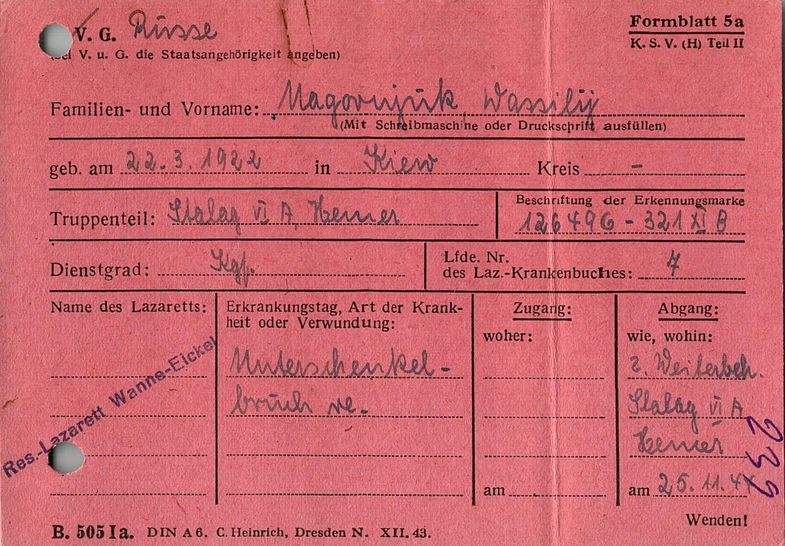 V. G. Russe
(bei V. u. G. die Staatsangehörigkeit angeben)
Formblatt 5a
K. S. V. (H) Teil II
Familien- und Vorname: Nagornjuk, Wassilij
(Mit Schreibmaschine oder Druckschrift ausfüllen)
geb. am 22.3.1922 in Kiew Kreis -
Truppenteil: Stalag VI A, Hemer
Beschriftung der Erkennungsmarke
126496 - 321 XI B
Dienstgrad: Kgf.
Lfde. Nr.
des Laz.-Krankenbuches: 7
Name des Lazaretts:
Res.-Lazarett Wanne-Eickel
Erkrankungstag, Art der Krank-
heit oder Verwundung:
Unterschenkel-
bruch re.
Zugang:
woher:
am
Abgang:
wie, wohin:
z. Weiterbeh.
Stalag VI A
Hemer
am 25.11.44
239
Wenden!
B. 505 Ia. DIN A 6. C. Heinrich, Dresden N. XII. 43.